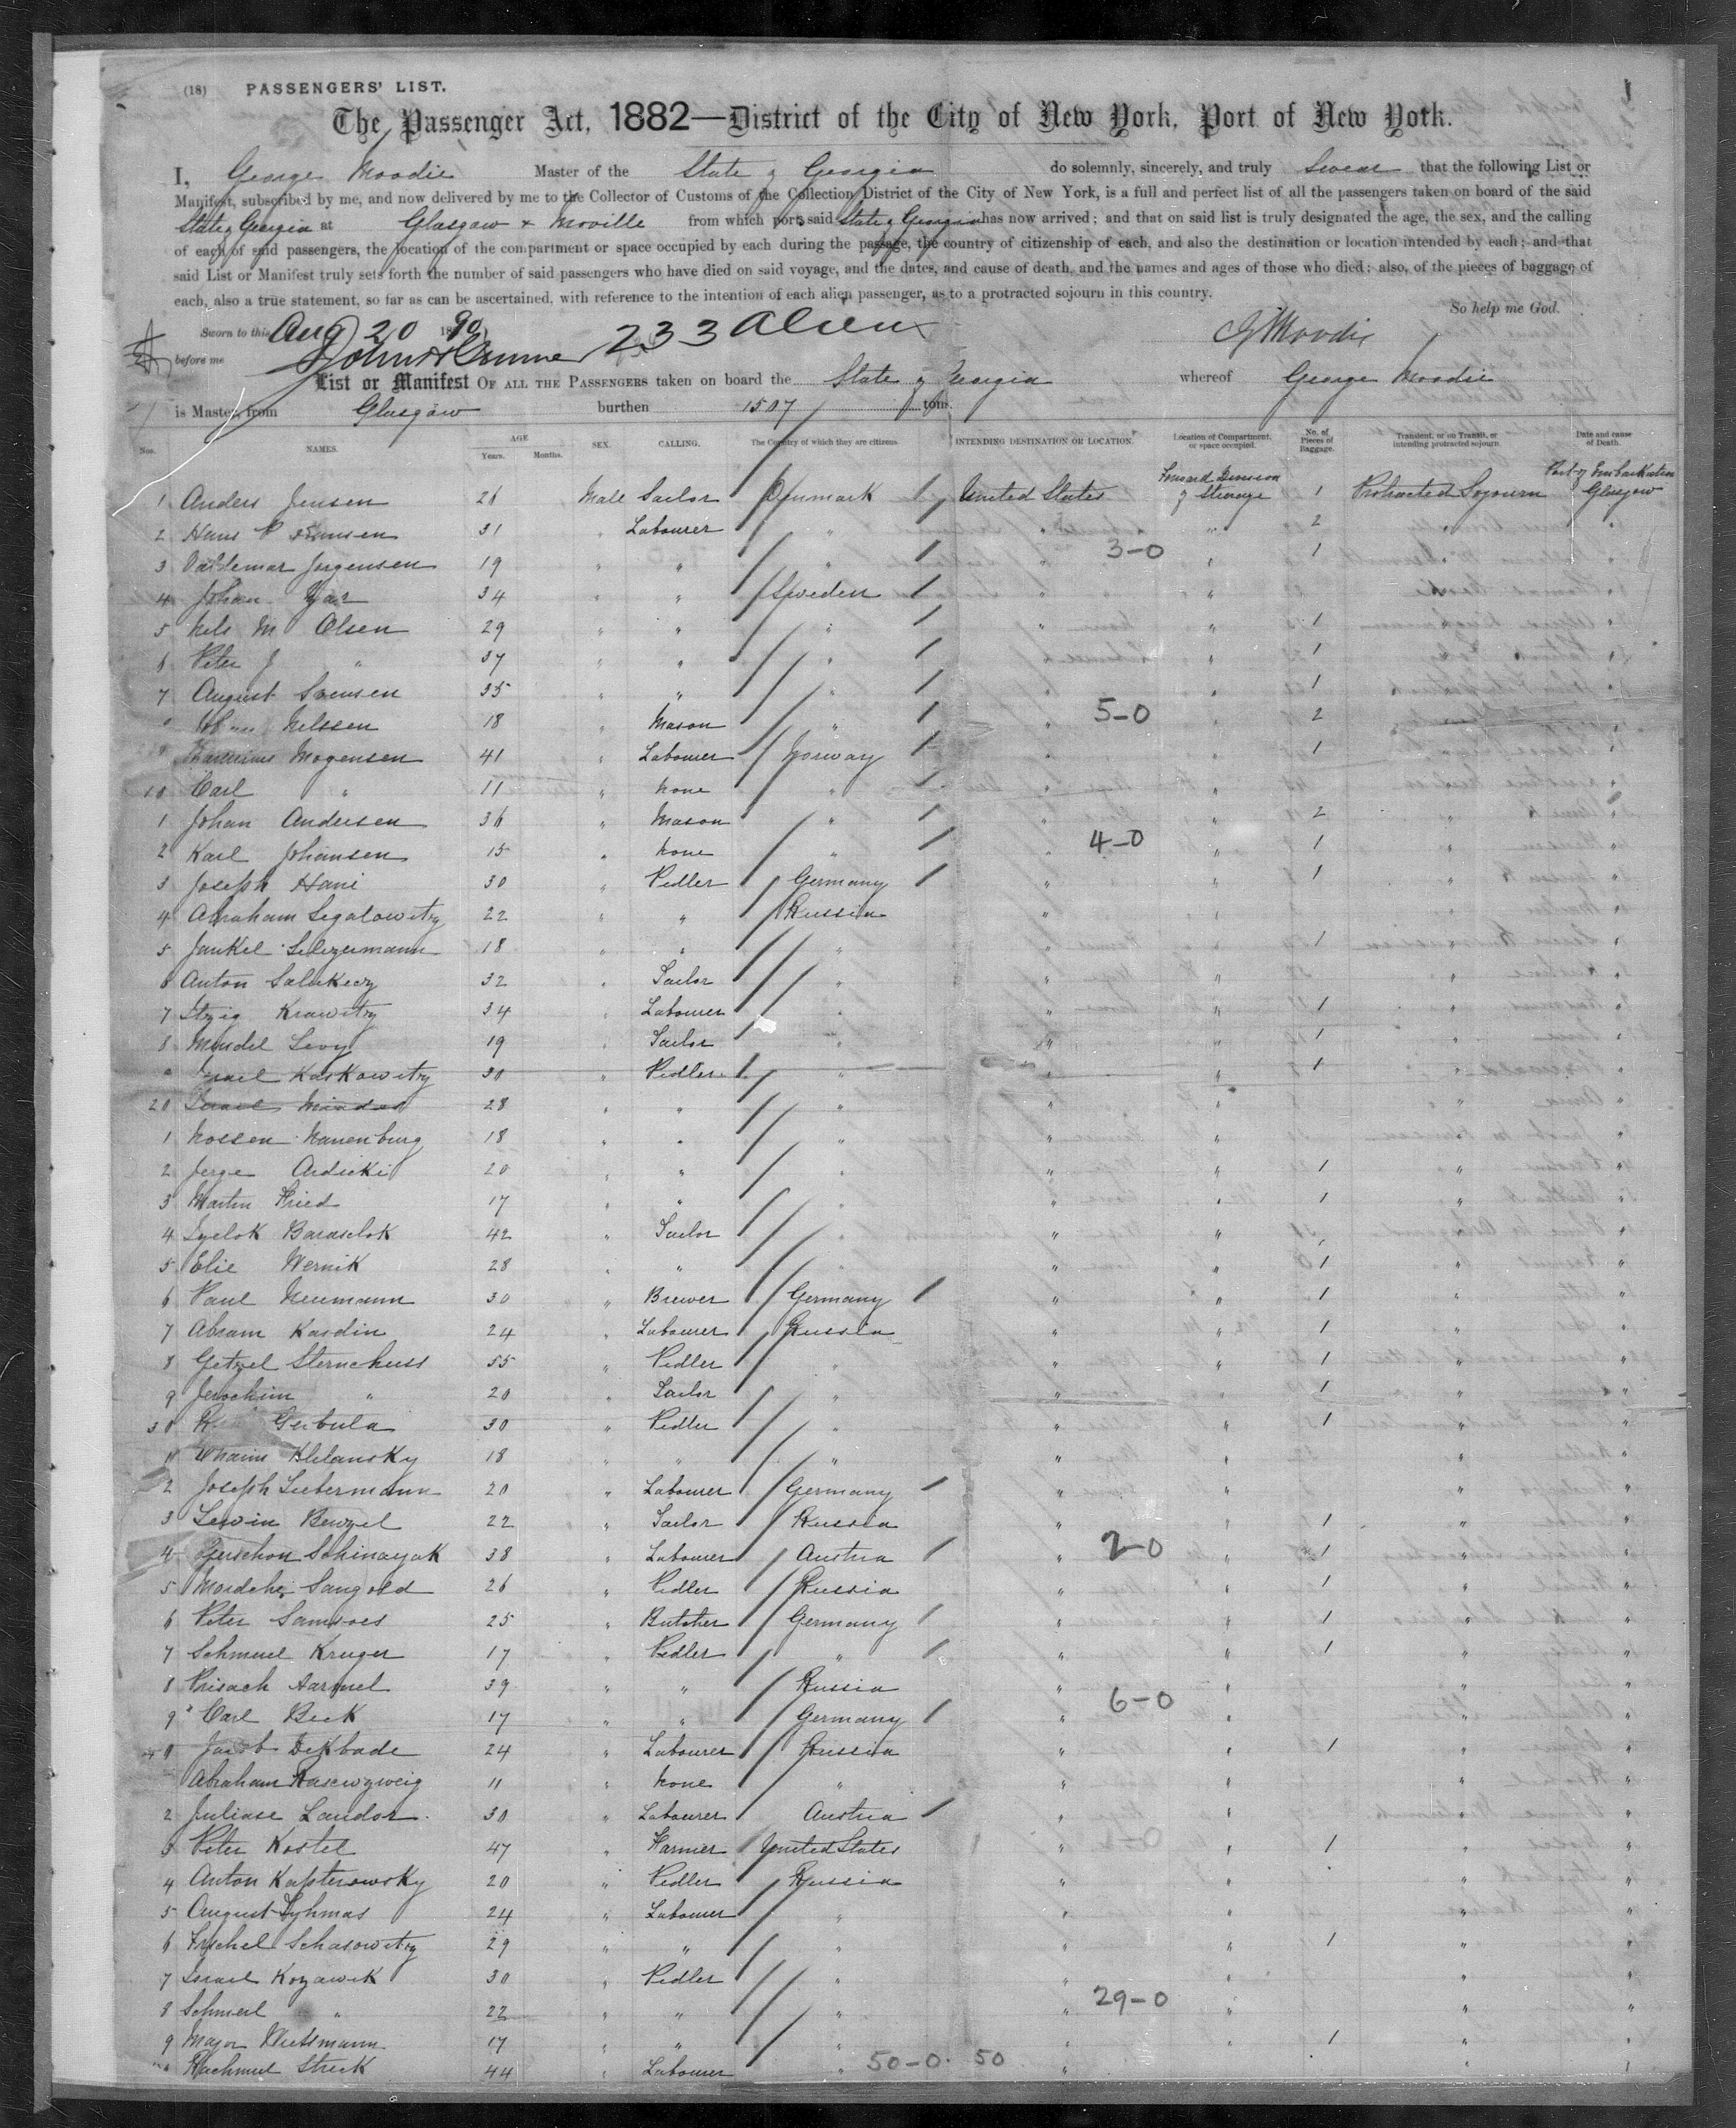 (18) PASSENGERS' LIST. 1
The Passenger Act, 1882—District of the City of New York, Port of New York.
I, George Moodie Master of the State of Georgia do solemnly, sincerely, and truly Swear that the following List or
Manifest, subscribed by me, and now delivered by me to the Collector of Customs of the Collection District of the City of New York, is a full and perfect list of all the passengers taken on board of the said
State of Georgia at Glasgow + Moville from which port said State of Georgia has now arrived; and that on said list is truly designated the age, the sex, and the calling
of each of said passengers, the location of the compartment or space occupied by each during the passage, the country of citizenship of each, and also the destination or location intended by each; and that
said List or Manifest truly sets forth the number of said passengers who have died on said voyage, and the dates, and cause of death, and the names and ages of those who died; also, of the pieces of baggage of
each, also a true statement, so far as can be ascertained, with reference to the intention of each alien passenger, as to a protracted sojourn in this country.
So help me God.
Sworn to this Aug 20 1890 233 Aliens G Moodie
before me
List or Manifest OF ALL THE PASSENGERS taken on board the State of Georgia whereof George Moodie
is Master, from Glasgow burthen 1507 tons.
Nos. NAMES. AGE Years. Months. SEX. CALLING. The Country of which they are citizens. INTENDING DESTINATION OR LOCATION. Location of Compartment, or space occupied. No. of Pieces of Baggage. Transient, or on Transit, or intending protracted sojourn. Date and cause of Death.
Port of Embarkation
1 Anders Jensen 26 Male Sailor Denmark United States Forward Division of Steerage 1 Protracted Sojourn Glasgow
2 Hans P Hansen 31 " Labourer " " " 2 " "
3 Valdemar Jorgensen 19 " " " " 3-0 " 1 " "
4 Johan 34 " " Sweden " " " "
5 Nels M Olsen 29 " " " " " 1 " "
6 Peter J " 37 " " " " " 1 " "
7 August Svensen 35 " " " " " 1 " "
Nilssen 18 " Mason " " 5-0 " 2 " "
Mogensen 41 " Labourer Norway " " 1 " "
10 Carl " 11 " None " " " " "
1 Johan Andersen 36 " Mason " " " 2 " "
2 Karl Johansen 15 " None " " 4-0 " 1 " "
3 Joseph Hani 30 " Pedler Germany " " 1 " "
4 Abraham Segalowitzy 22 " " Russia " " " "
5 Jankel Selezermann 18 " " " " " 1 " "
6 Anton Salukewy 32 " Tailor " " " " "
7 Itzig Krawitzy 34 " Labourer " " " 1 " "
8 Mendel Levy 19 " Tailor " " " 1 " "
Israel Kaskowitzy 30 " Pedler " " " 1 " "
20 Israel 28 " " " " " " "
1 Nossen Nanenburg 18 " " " " " " "
2 Jerge Ardicki 20 " " " " " 1 " "
3 Martin Fried 17 " " " " " 1 " "
4 Baraselok 42 " Tailor " " " " "
5 Elie Wernik 28 " " " " " 1 " "
6 Paul Neumann 30 " Brewer Germany " " 1 " "
7 Abram Kasdin 24 " Labourer Russia " " 1 " "
8 Getzel Sternchuss 55 " Pedler " " " 1 " "
9 Jerochim " 20 " Tailor " " " 1 " "
30 Gerbula 30 " Pedler " " " 1 " "
Chaim Klelansky 18 " " " " " " "
2 Joseph Liebermann 20 " Labourer Germany " " " "
3 Lewin Benzel 22 " Tailor Russia " " 1 " "
4 Gerschon Schinayak 38 " Labourer Austria " 2-0 " 1 " "
5 Mordche Sangold 26 " Pedler Russia " " 1 " "
6 Peter Samsoes 25 " Butcher Germany " " 1 " "
7 Schmuel Kruger 17 " Pedler " " " 1 " "
8 Prisach 39 " " Russia " " " "
9 Carl Beck 17 " " Germany " 6-0 " " "
40 Jacob Dekbade 24 " Labourer Russia " " 1 " "
Abraham Rasenzweig 11 " None " " " " "
2 Juliase Landor 30 " Labourer Austria " " " "
3 Peter Kostel 47 " Farmer United States " " 1 " "
4 Anton Kapterowsky 20 " Pedler Russia " " " "
5 August 24 " Labourer " " " " "
6 Schasowitzy 29 " " " " " 1 " "
7 Israel Kozawik 30 " Pedler " " " " "
8 Schmerl " 22 " " " " 29-0 " " "
9 Major 17 " " " " " 1 " "
Rachmul Streck 44 " Labourer " 50-0. 50 " " "